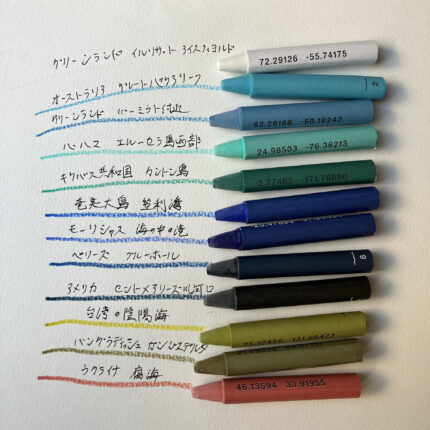 グリーンランド イルリサット アイスフィヨルド
72.29126 -55.74175
オーストラリア グレートバリアリーフ
2
グリーンランド 付近
62.29166 50.16242
バハマ エルーセラ島西部
24.98503 -76.36213
キリバス共和国 カントン島
-2.77462 -171.70690
奄美大島 笠利湾
モーリシャス 海の中の滝
ベリーズ ブルーホール
8
アメリカ セントメアリーズ川河口
台湾の陰陽海
25.12450 121.86472
バングラデッシュ ガンジスデルタ
ウクライナ 腐海
46.13594 33.91955